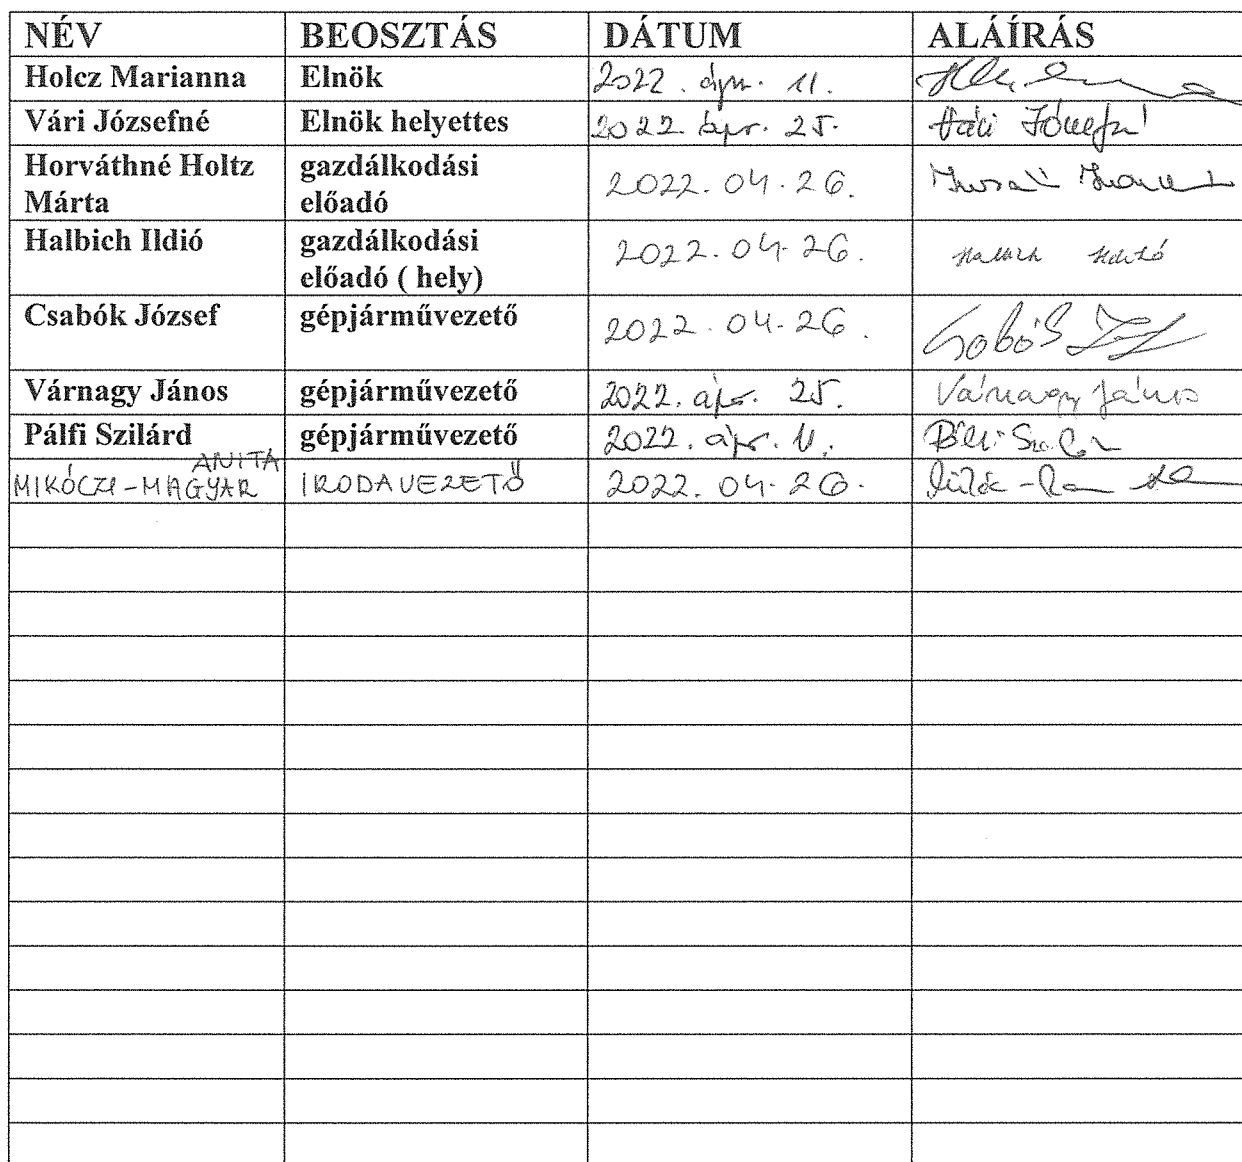 NÉV BEOSZTÁS DÁTUM ALÁÍRÁS
Holcz Marianna Elnök 2022. ápr. 11.
Vári Józsefné Elnök helyettes 2022. ápr. 25. Vári Józsefné
Horváthné Holtz gazdálkodási
Márta előadó 2022.04.26.
Halbich Ildió gazdálkodási
előadó ( hely) 2022.04.26.
Csabók József gépjárművezető 2022.04.26.
Várnagy János gépjárművezető 2022. ápr. 25. Várnagy János
Pálfi Szilárd gépjárművezető 2022. ápr. 11.
ANITA
MIKÓCZI-MAGYAR IRODAVEZETŐ 2022. 04. 26.